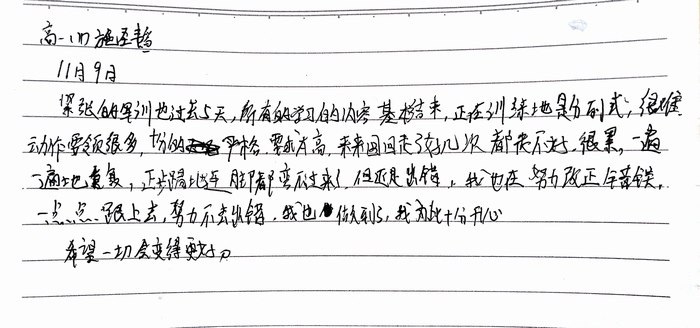 高一(1) 施
11月9日
紧张的军训也过去5天，所有的学习的内容基本结束，正在训练地是分列式，很难
动作要领很多，十分的严格，要求不高，来来回回走了好几次都走不好，很累，一遍
一遍地重复，正步踢地连脚都弯不过来了，但还是出错，我也在努力改正错误，
一点点跟上去，努力不去出错，我也做到了，我为此十分开心
希望一切会变得更好。